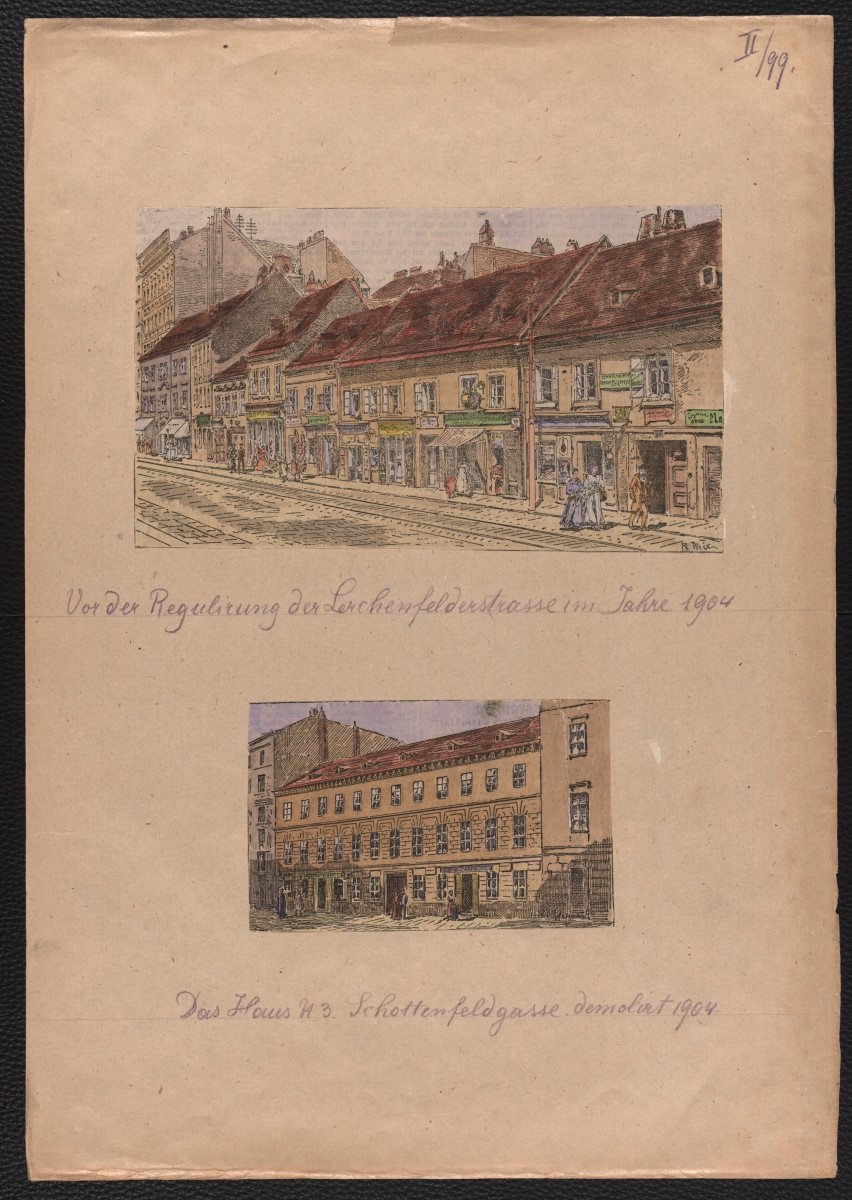 II/99.
Vor der Regulirung der Lerchenfelderstrasse im Jahre 1904
Das Haus N 3. Schottenfeldgasse. demolirt 1904.